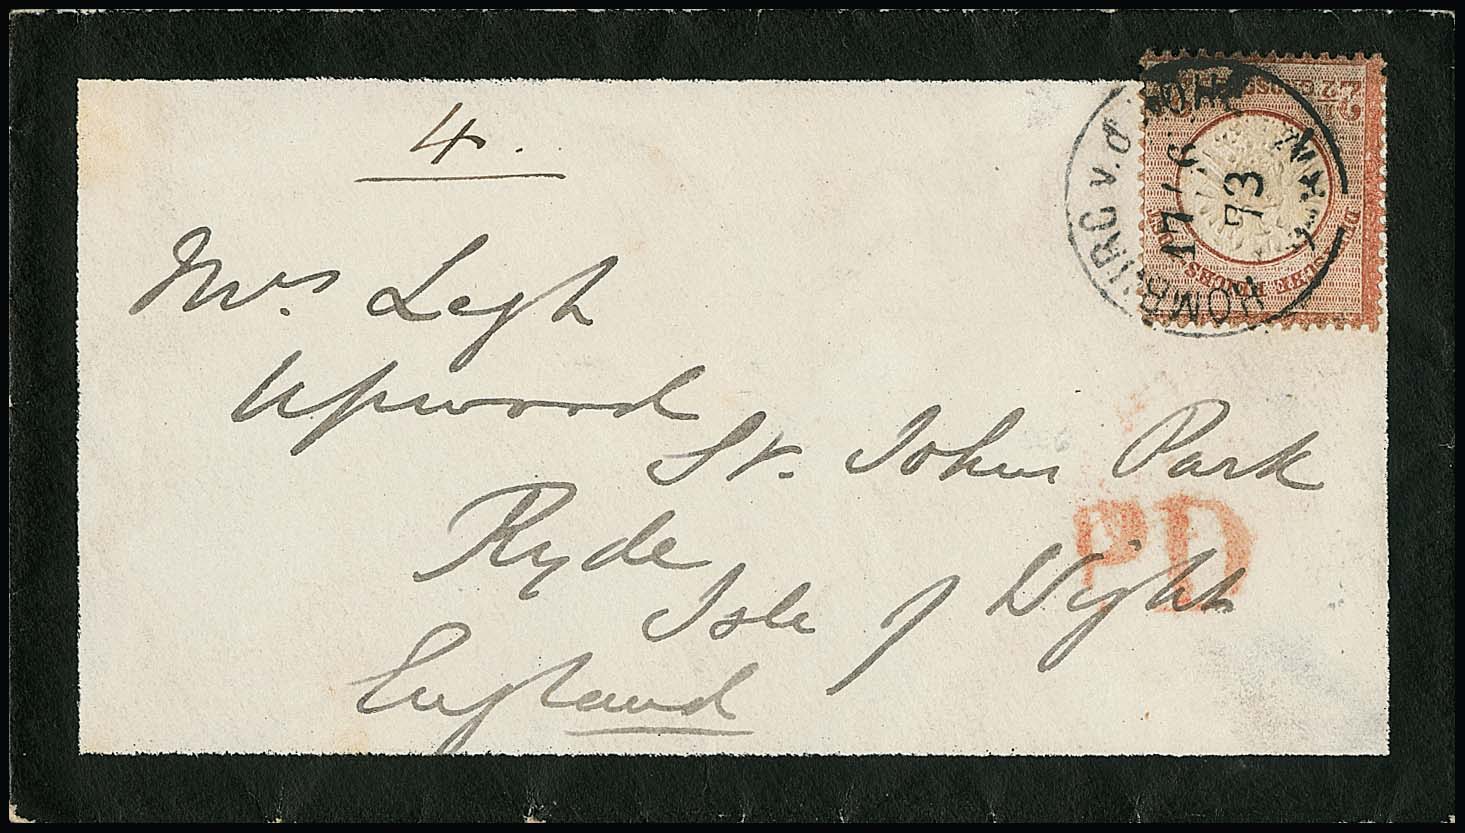 4.
Mrs. Legh
Upwood
St. Johns Park
Ryde
Isle of Wight
England
PD
HOMBURG v.d. HÖHE
17 / 6
73
2½ GROSCHEN
DEUTSCHE REICHS-POST